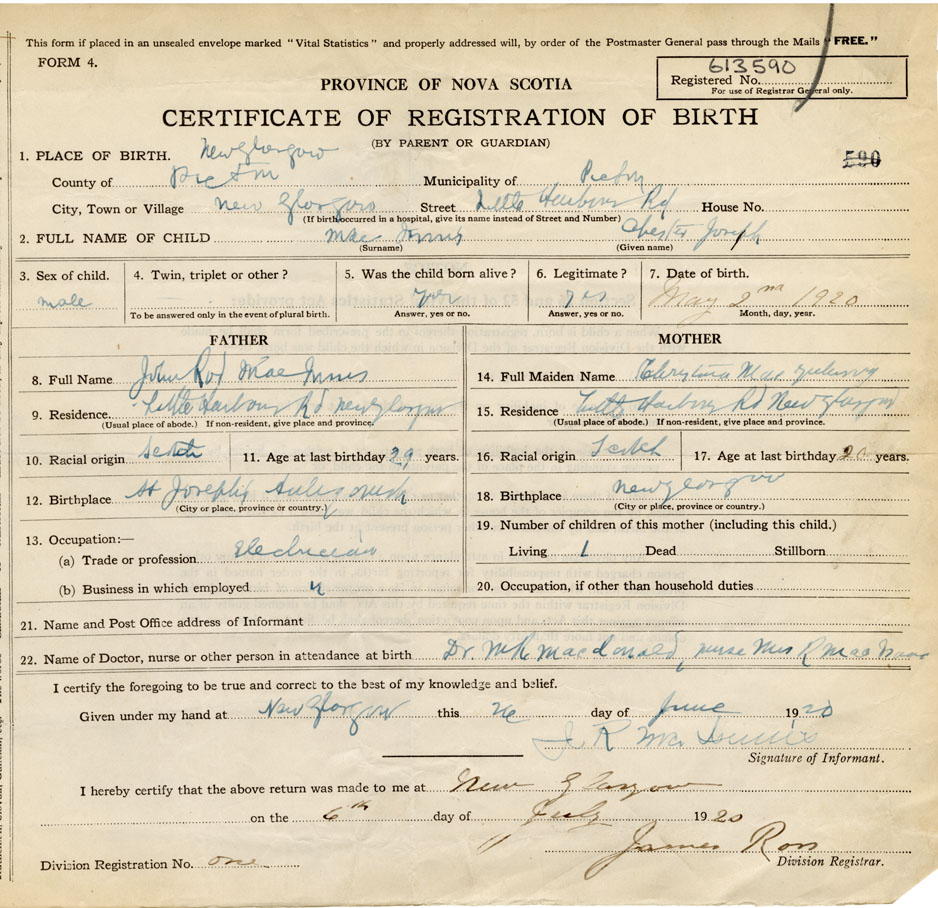 This form if placed in an unsealed envelope marked "Vital Statistics" and properly addressed will, by order of the Postmaster General pass through the Mails "FREE."
FORM 4.
613590
Registered No.
For use of Registrar General only.
PROVINCE OF NOVA SCOTIA
CERTIFICATE OF REGISTRATION OF BIRTH
(BY PARENT OR GUARDIAN)
590
1. PLACE OF BIRTH. New Glasgow
County of Pictou Municipality of Pictou
City, Town or Village New Glasgow Street Little Harbour Rd House No.
(If birth occurred in a hospital, give its name instead of Street and Number)
2. FULL NAME OF CHILD Mac Innis Chester Joseph
(Surname) (Given name)
3. Sex of child. 4. Twin, triplet or other? 5. Was the child born alive? 6. Legitimate? 7. Date of birth.
male yes yes May 2nd 1920
To be answered only in the event of plural birth. Answer, yes or no. Answer, yes or no. Month, day, year.
FATHER
8. Full Name John Rod Mac Innis
9. Residence. Little Harbour Rd New Glasgow
(Usual place of abode.) If non-resident, give place and province.
10. Racial origin Scotch 11. Age at last birthday 29 years.
12. Birthplace St Josephs
(City or place, province or country.)
13. Occupation:—
(a) Trade or profession Electrician
(b) Business in which employed "
MOTHER
14. Full Maiden Name Christina Mac
15. Residence Little Harbour Rd New Glasgow
(Usual place of abode.) If non-resident, give place and province.
16. Racial origin Scotch 17. Age at last birthday 20 years.
18. Birthplace New Glasgow
(City or place, province or country.)
19. Number of children of this mother (including this child.)
Living 1 Dead Stillborn
20. Occupation, if other than household duties
21. Name and Post Office address of Informant
22. Name of Doctor, nurse or other person in attendance at birth Dr. Macdonald, nurse Mrs R Mac
I certify the foregoing to be true and correct to the best of my knowledge and belief.
Given under my hand at New Glasgow this 26 day of June 1920
J R Mac Innis
Signature of Informant.
I hereby certify that the above return was made to me at New Glasgow
on the 6th day of July 1920
James Ross
Division Registration No. one Division Registrar.